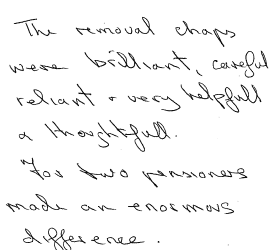 The removal chaps
were brilliant, careful
reliant + very helpfull
a thoughtfull.
For two pensioners
made an enormous
difference.